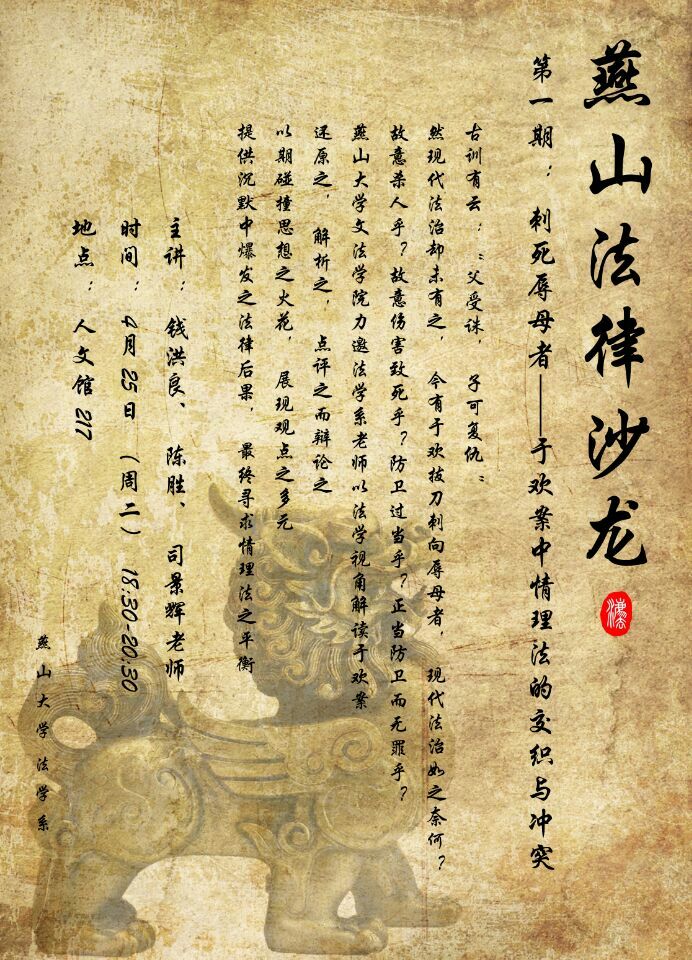 燕山法律沙龙
第一期：刺死辱母者——于欢案中情理法的交织与冲突
古训有云："父受诛，子可复仇"
然现代法治却未有之，今有于欢拔刀刺向辱母者，现代法治如之奈何？
故意杀人乎？故意伤害致死乎？防卫过当乎？正当防卫而无罪乎？
燕山大学文法学院力邀法学系老师以法学视角解读于欢案
还原之，解析之，点评之而辩论之
以期碰撞思想之火花，展现观点之多元
提供沉默中爆发之法律后果，最终寻求情理法之平衡
主讲：钱洪良、陈胜、司景辉老师
时间：4月25日（周二）18:30-20:30
地点：人文馆217
燕山大学法学系